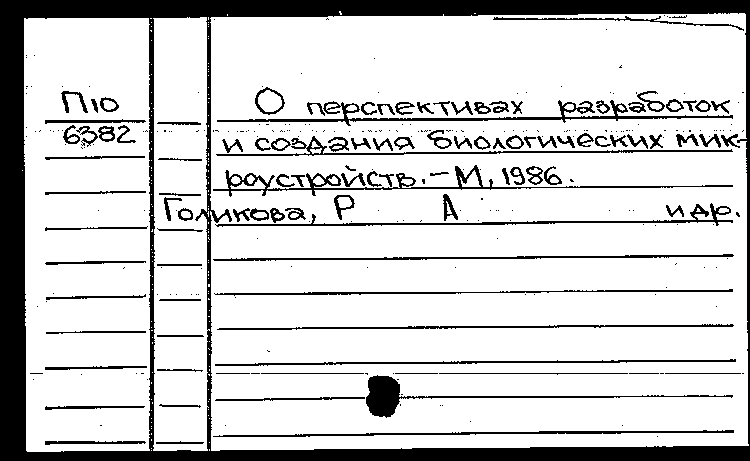 П10
6382
О перспективах разработок
и создания биологических мик-
роустройств.-М, 1986.
Голикова, Р А и др.